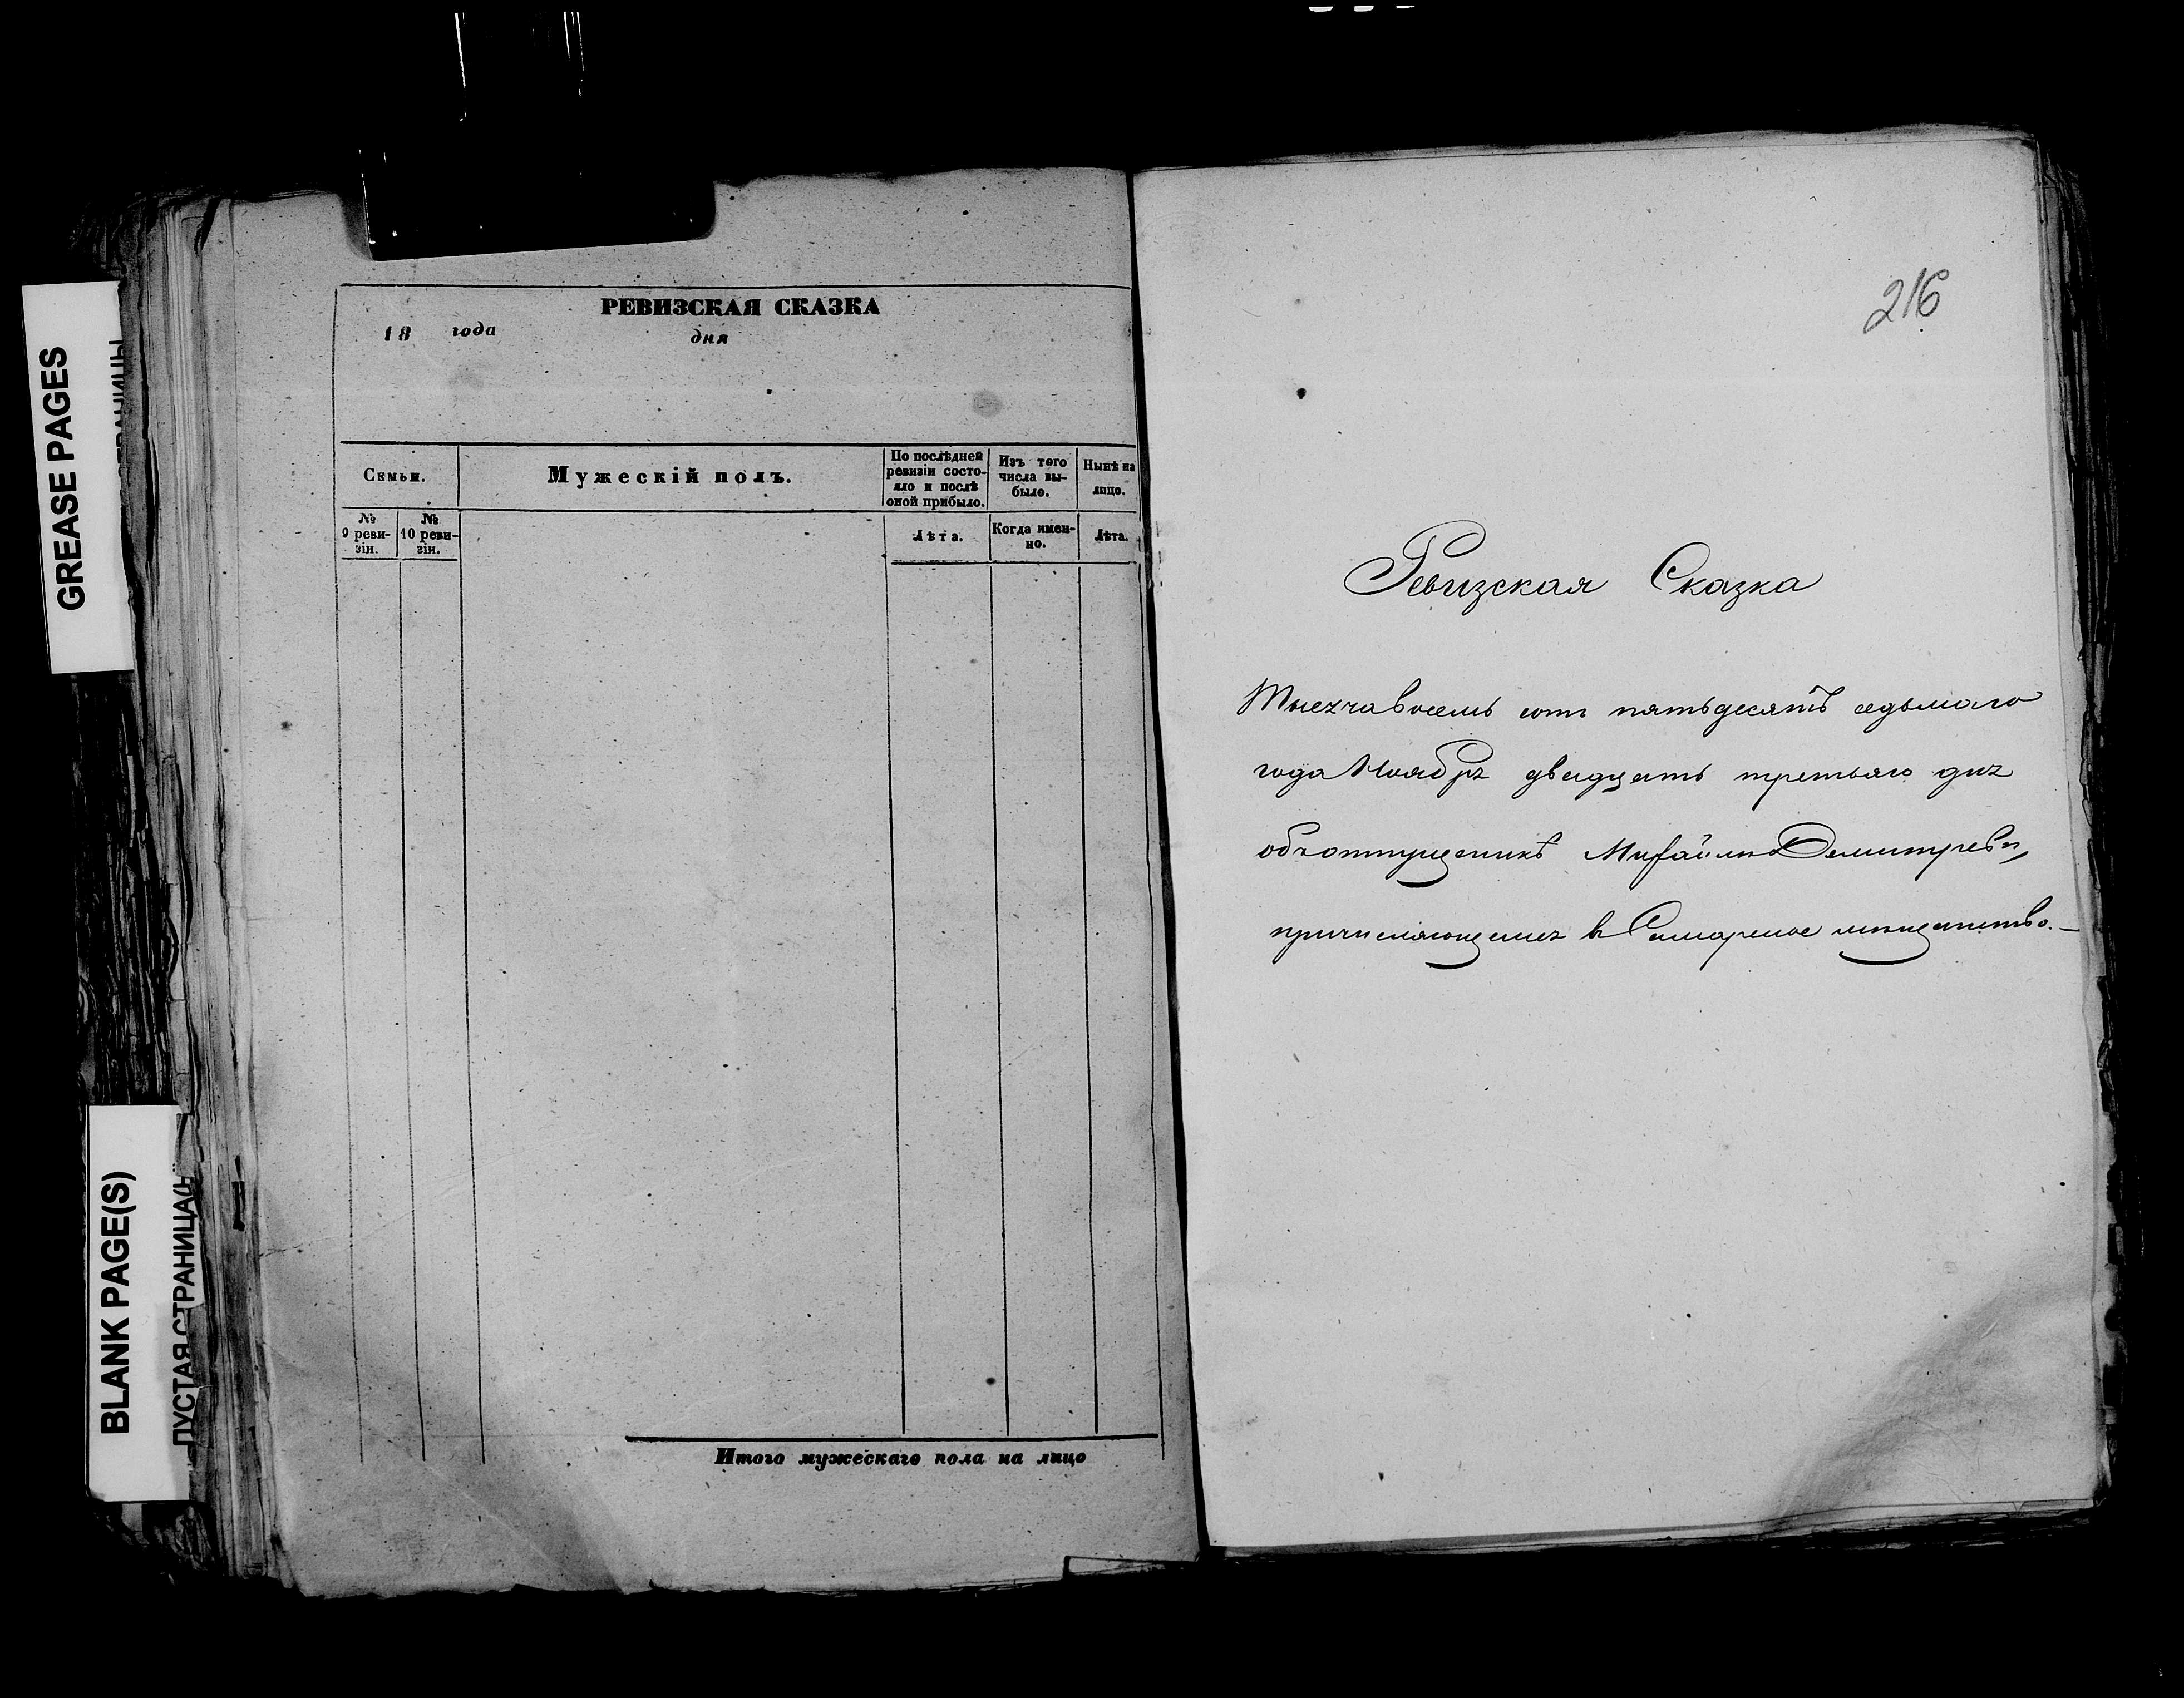 GREASE PAGES
BLANK PAGE(S)
ПУСТАЯ СТРАНИЦА(Ы
РЕВИЗСКАЯ СКАЗКА
18 года дня
Семьи.
Мужескій полъ.
По послѣдней ревизіи состояло и послѣ оной прибыло.
Изъ того числа выбыло.
Нынѣ на лицо.
№ 9 ревизіи.
№ 10 ревизіи.
Лѣта.
Когда именно.
Лѣта.
Итого мужескаго пола на лицо
216
Ревизская Сказка
Тысяча восемь сотъ пятьдесятъ седьмаго
года Ноября двадцать третьяго дня
объ отпущеникѣ Михайлѣ
причисляющемся въ Самарское мещанство.